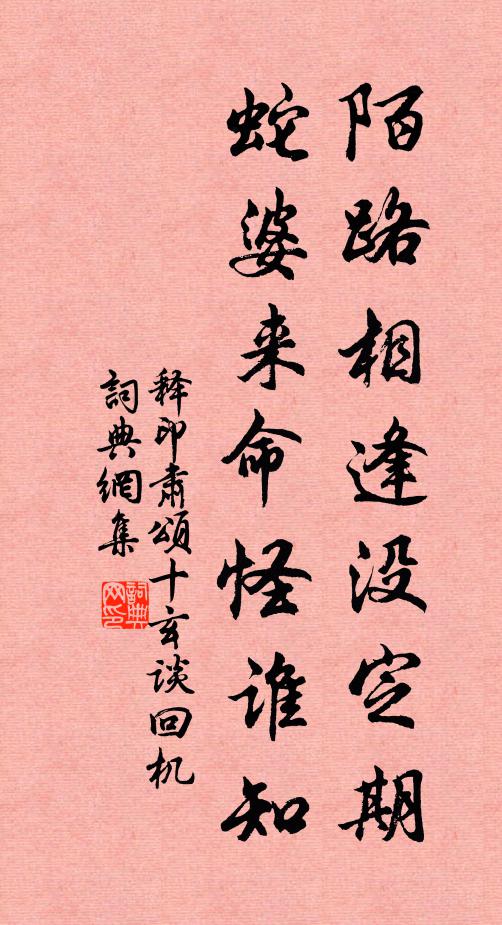 陌路相逢没定期
蛇婆来命怪谁知
释印肃颂十玄谈回机
詞典網集
詞典网印